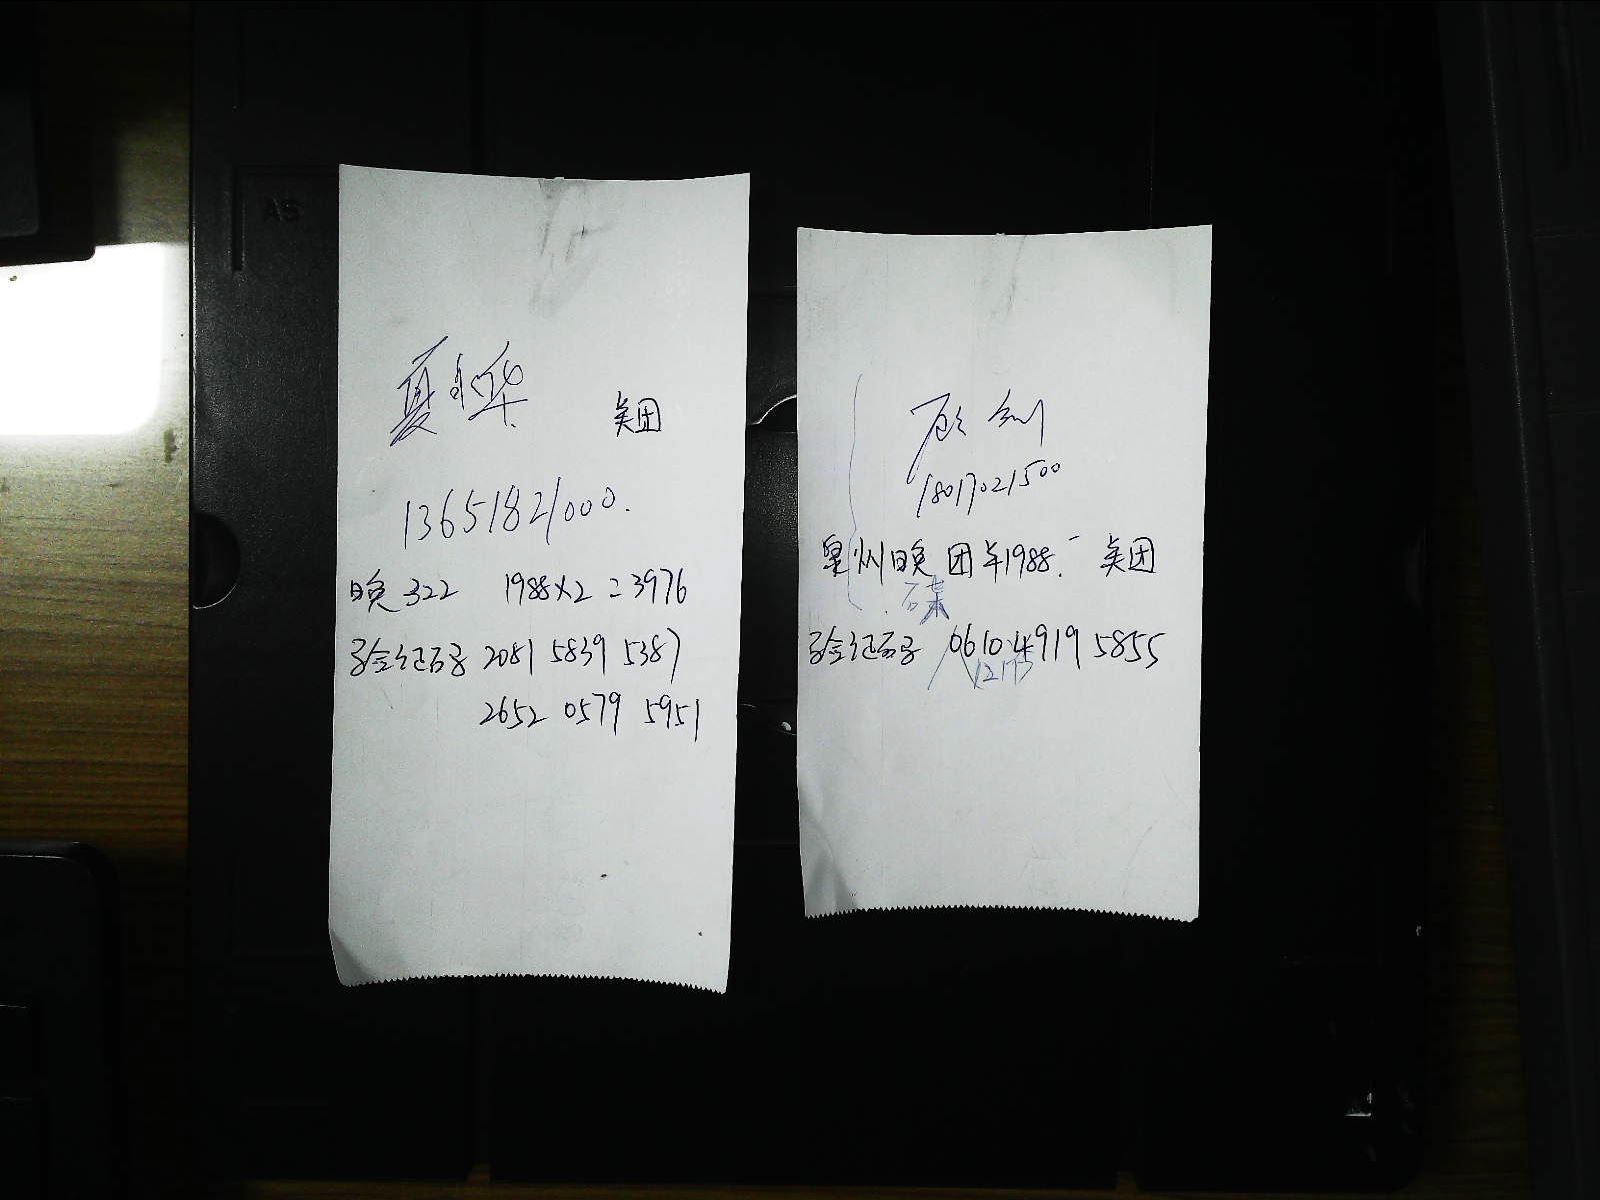 AS
夏 华
美团
13651821000.
晚 322 1988×2=3976
验证码 2081 5839 5387
2652 0579 5951
顾 剑
18017021500
皇州晚 团年1988.- 美团
验证码 0610 4919 5855
12173